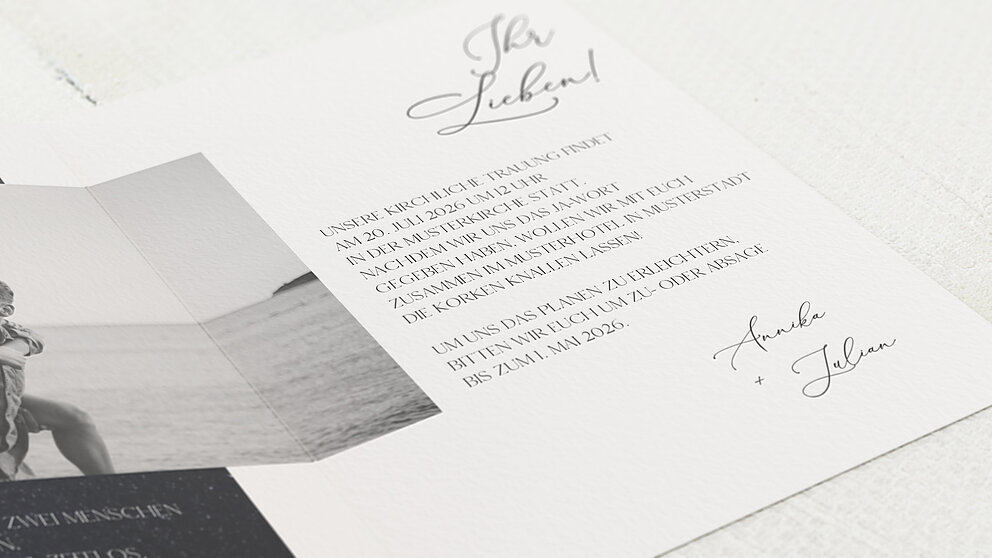 Ihr
Lieben!
UNSERE KIRCHLICHE TRAUUNG FINDET
AM 20. JULI 2026 UM 12 UHR
IN DER MUSTERKIRCHE STATT.
NACHDEM WIR UNS DAS JA-WORT
GEGEBEN HABEN, WOLLEN WIR MIT EUCH
ZUSAMMEN IM MUSTERHOTEL IN MUSTERSTADT
DIE KORKEN KNALLEN LASSEN!
UM UNS DAS PLANEN ZU ERLEICHTERN,
BITTEN WIR EUCH UM ZU- ODER ABSAGE
BIS ZUM 1. MAI 2026.
Annika
+ Julian
ZWEI MENSCHEN
ZEITLOS,